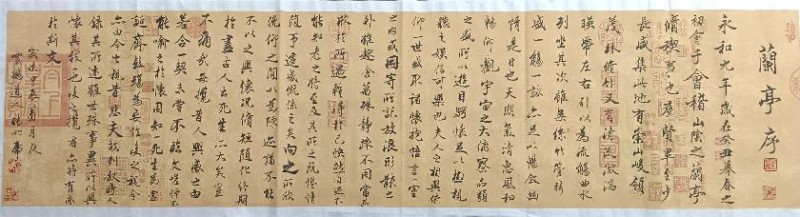 蘭亭序
永和九年歲在癸丑暮春之
初會于會稽山陰之蘭亭
脩禊事也群賢畢至少
長咸集此地有崇山峻領
茂林脩竹又有清流激湍
暎帶左右引以為流觴曲水
列坐其次雖無絲竹管絃之
盛一觴一詠亦足以暢敘幽
情是日也天朗氣清惠風和
暢仰觀宇宙之大俯察品類
之盛所以遊目騁懷足以極視
聽之娛信可樂也夫人之相與俯
仰一世或取諸懷抱悟言一室
之內或因寄所託放浪形骸之
外雖趣舍萬殊靜躁不同當其
欣於所遇蹔得於己快然自足不
知老之將至及其所之既惓情
隨事遷感慨係之矣向之所欣
俛仰之間以為陳迹猶不能
不以之興懷況脩短隨化終期
於盡古人云死生亦大矣豈
不痛哉每攬昔人興感之由
若合一契未嘗不臨文嗟悼不
能喻之於懷固知一死生為虛
誕齊彭殤為妄作後之視今
亦由今之視昔悲夫故列敘時人
錄其所述雖世殊事異所以興
懷其致一也後之攬者亦將有感
於斯文